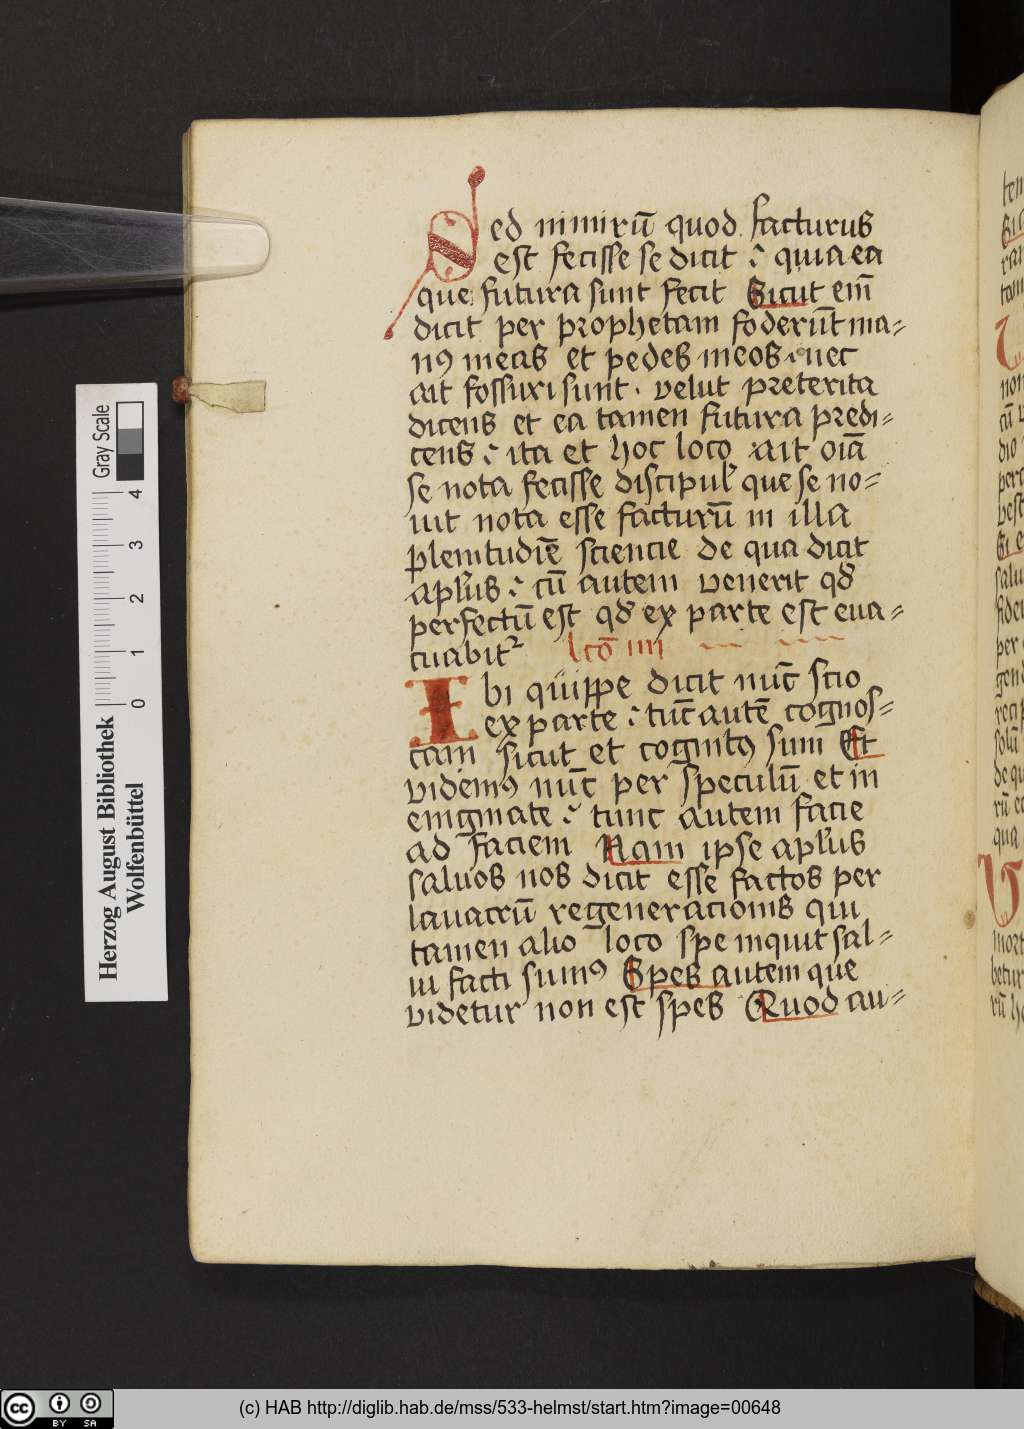 Sed nimirū quod facturus
est fecisse se dicit : quia ea
que futura sunt fecit Sicut em̄
dicit per prophetam foderūt ma=
nꝰ meas et pedes meos . nec
ait fossuri sunt . velut preterita
dicens et ea tamen futura predi=
cens : ita et hoc loco ait oīa
se nota fecisse discipul' que se no=
uit nota esse facturū in illa
plenitudīe sciencie de qua dicit
apl'us : cū autem venerit qđ
perfectū est qđ ex parte est eua=
cuabit᷑ lcō iiii
Ibi quippe dicit nūc scio
ex parte : tūc autē cognos=
cam sicut et cognitꝰ sum Et
videmꝰ nūc per speculū et in
enigmate : tunc autem facie
ad faciem Nam ipse apl'us
saluos nos dicit esse factos per
lauacrū regeneracionis qui
tamen alio loco spe inquit sal=
ui facti sumꝰ Spes autem que
videtur non est spes Quod au=
Herzog August Bibliothek
Wolfenbüttel
Gray Scale
0 1 2 3 4
(c) HAB http://diglib.hab.de/mss/533-helmst/start.htm?image=00648
cc BY SA